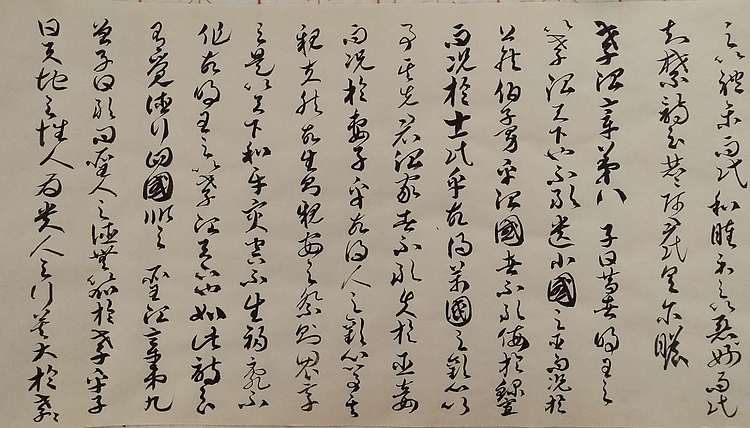 之以禮樂而民和睦示之以惡好而民
知禁詩云赫赫師尹民具爾瞻
孝治章第八 子曰昔者明王之
以孝治天下也不敢遺小國之臣而況於
公侯伯子男乎治國者不敢侮於鰥寡
而況於士民乎故得萬國之歡心以
事其先君治家者不敢失於臣妾
而況於妻子乎故得人之歡心以事其
親夫然故生則親安之祭則鬼享
之是以天下和平災害不生禍亂不
作故明王之以孝治天下也如此詩云
有覺德行四國順之 聖治章第九
曾子曰敢問聖人之德無加於孝乎子
曰天地之性人為貴人之行莫大於孝